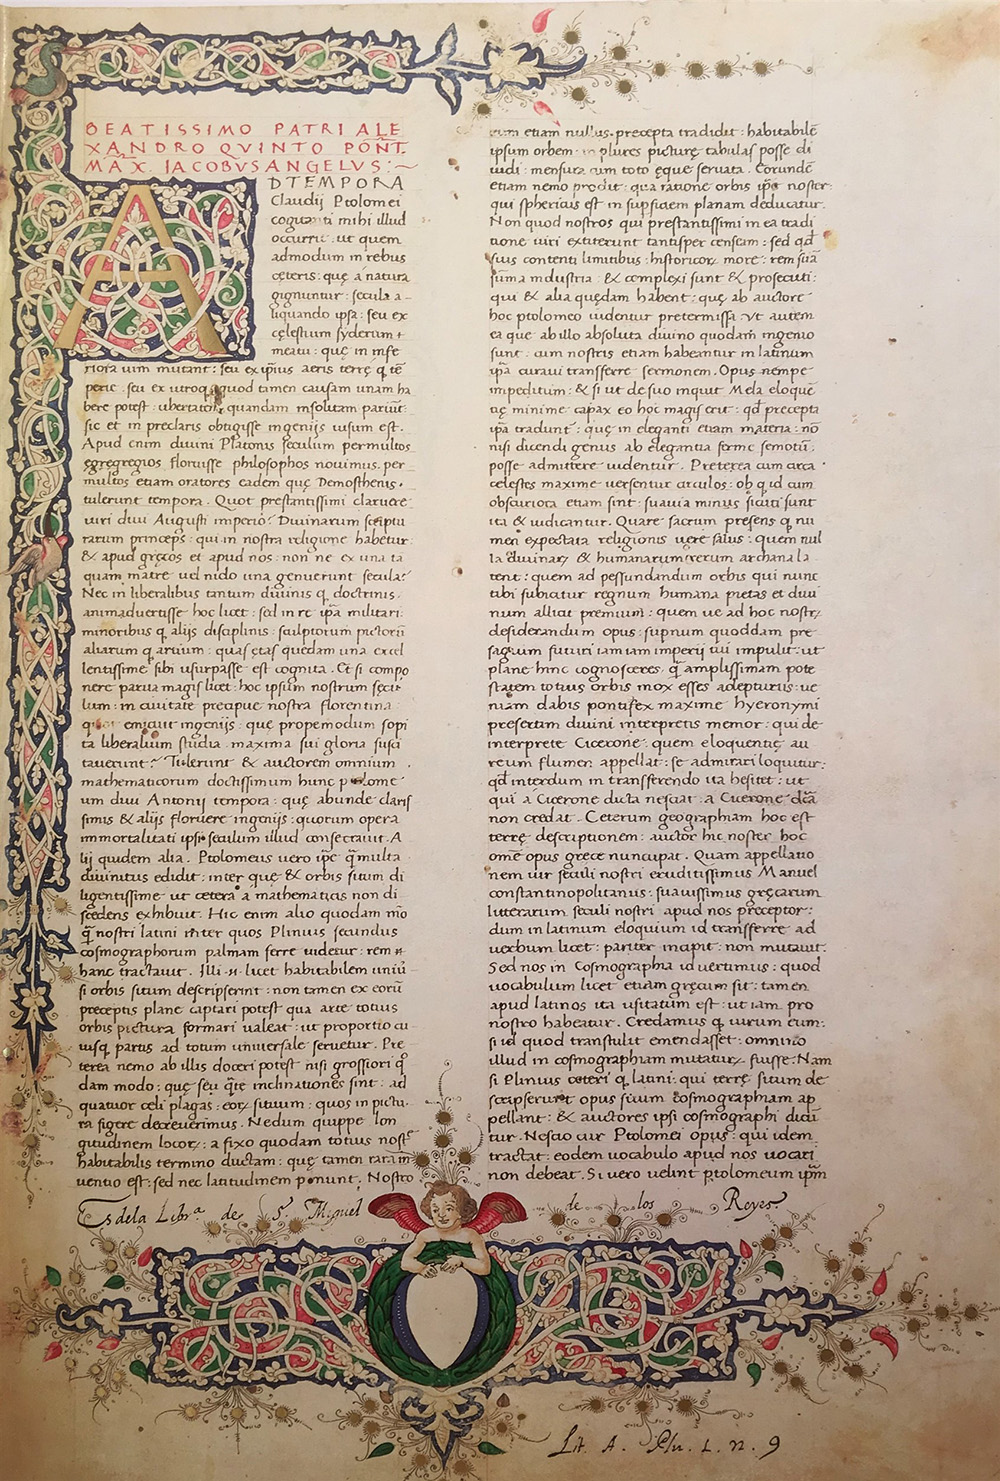 BEATISSIMO PATRI ALE
XANDRO QVINTO PŌÑT.
MAX. IACOBVS ANGELVS:~
A
DTEMPORA
Claudij Ptolomei
cogitanti mihi illud
occurrit: ut quem
admodum in rebus
cęteris: quę a natura
gignuntur: secula a-
liquando ipsa: seu ex
cęlestium syderum
meatu: quę in infe
riora uim mutant: seu ex ipsius aeris terrę q̨ tē
perie. seu ex utroq̨ quod tamen causam unam ha
bere potest. ubertatem quandam insolitam pariūt:
sic et in preclaris obtigisse ingenijs uisum est.
Apud enim diuini Platonis seculum permultos
egregregios floruisse philosophos nouimus. per
multos etiam oratores eadem quę Demosthenis.
tulerunt tempora. Quot prestantissimi claruere
uiri diui Augusti imperio? Diuinarum scriptu
rarum princeps: qui in nostra religione habetur:
& apud gręcos et apud nos: non ne ex una ta
quam matre uel nido una genuerunt secula?
Nec in liberalibus tantum diuinis q̨ doctrinis.
animaduertisse hoc licet: sed in re ipsa militari:
minoribus q̨ alijs disciplinis: sculptorum pictorū
aliarum q̨ artium: quas ętas quędam una excel
lentissime sibi usurpasse est cognita. Et si compo
nere parua magis licet: hoc ipsum nostrum secu
lum: in ciuitate precipue nostra florentina
enicuit ingenijs: quę propemodum sopi
ta liberalium studia. maxima sui gloria susci
tauerunt? Tulerunt & auctorem omnium
mathematicorum doctissimum hunc ptolome
um diui Antonij tempora: quę abunde claris
simis & alijs floruere ingenijs: quorum opera
immortalitati ipsi seculum illud consecrauit. A
lij quidem alia. Ptolomeus uero ipē q̄ multa
diuinitus edidit: inter quę & orbis situm di
ligentissime ut cetera a mathematicis non di
scedens exhibuit. Hic enim alio quodam mō
q̄ nostri latini inter quos Plinius secundus
cosmographorum palmam ferre uidetur: rem
hanc tractauit. Illi .n. licet habitabilem uniū
si orbis situm descripserint: non tamen ex eorū
preceptis plane captari potest qua arte totius
orbis pictura formari ualeat: ut proportio cu
iusq̨ partis ad totum uniuersale seruetur. Pre
terea nemo ab illis doceri potest nisi grossiori q̄
dam modo: quę seu q̄te inclinationes sint: ad
quatuor celi plagas: eorꝫ situum: quos in pictu
ra figere decreuerimus. Nedum quippe lon
gitudinem locorꝫ: a fixo quodam totius nostrę
habitabilis termino ductam: quę tamen rara in
uentio est: sed nec latitudinem ponunt. Nostro
eum etiam nullus precepta tradidit: habitabilē
ipsum orbem in plures picturę tabulas posse di
uidi: mensura cum toto ęque seruata. Eorundē
etiam nemo prodit: qua ratione orbis ipse noster:
qui sphericus est in supficiem planam deducatur.
Non quod nostros qui prestantissimi in ea tradi
tione uiri extiterunt tantisper censeam: sed qđ
suis contenti limitibus: historicorꝫ more: rem suā
summa industria & complexi sunt & prosecuti:
qui & alia quędam habent: quę ab auctore
hoc ptolomeo uidentur pretermissa. Vt autem
ea que ab illo absoluta diuino quodam ingenio
sunt. cum nostris etiam habeantur in latinum
ipsa curaui transferre sermonem. Opus nempe
impeditum: & si ut de suo inquit Mela eloquē
tię minime capax eo hoc magis erit: qđ precepta
ipsa tradunt: quę in eleganti etiam materia: nō
nisi dicendi genus ab elegantia ferme semotū.
posse admittere uidentur. Preterea cum circa
celestes maxime uersentur circulos: ob q̨ id cum
obscuriora etiam sint: suauia minus siciti sunt
ita & iudicantur. Quare sacrum presens q̨ nu
men expectata religionis uere salus: quem nul
la diuinarꝫ & humanarum rerum archana la
tent: quem ad pessundandum orbis qui nunc
tibi subicitur regnum humana pietas et diui
num alliciat premium: quem ue ad hoc nostrꝫ
desiderandum opus: supnum quoddam pre
sagium futuri iam iam imperij tui impulit: ut
plane hinc cognosceres. q̄ amplissimam pote
statem totius orbis mox esses adepturus: ue
niam dabis pontifex maxime hyeronymi
presertim diuini interpretis memor: qui de
interprete Cicerone: quem eloquentię au
reum flumen appellat: se admirari loquitur:
qđ interdum in transferendo ita hesitet: ut
qui a Cicerone dicta nesciat. a Cicerone dcā
non credat. Ceterum geographiam hoc est
terrę descriptionem: auctor hic noster hoc
omē opus gręce nuncupat. Quam appellatio
nem uir seculi nostri eruditissimus Manuel
constantinopolitanus: suauissimus gręcarum
litterarum seculi nostri apud nos preceptor:
dum in latinum eloquium id transferre ad
uerbum licet: pariter incipit: non mutauit.
Sed nos in Cosmographia id uertimus: quod
uocabulum licet etiam gręcum sit: tamen
apud latinos ita usitatum est: ut iam pro
nostro habeatur. Credamus q̨ uirum eum:
si id quod transtulit emendasset: omnino
illud in cosmographiam mutaturꝫ fuisse. Nam
si Plinius ceteri q̨ latini: qui terrę situm de
scripserunt opus sicum cosmographiam ap
pellant: & auctores ipsi cosmographi dicū
tur. Nescio cur Ptolomei opus: qui idem
tractat: eodem uocabulo apud nos uocari
non debeat. Si uero uelint ptolomeum ipm̄
Es dela Libr.ª de S. Miguel de los Reyes
Lit. A. Plu. L. n. 9